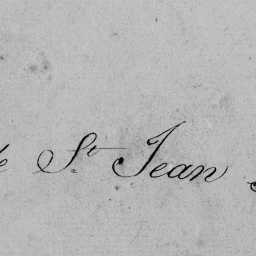 St Jean